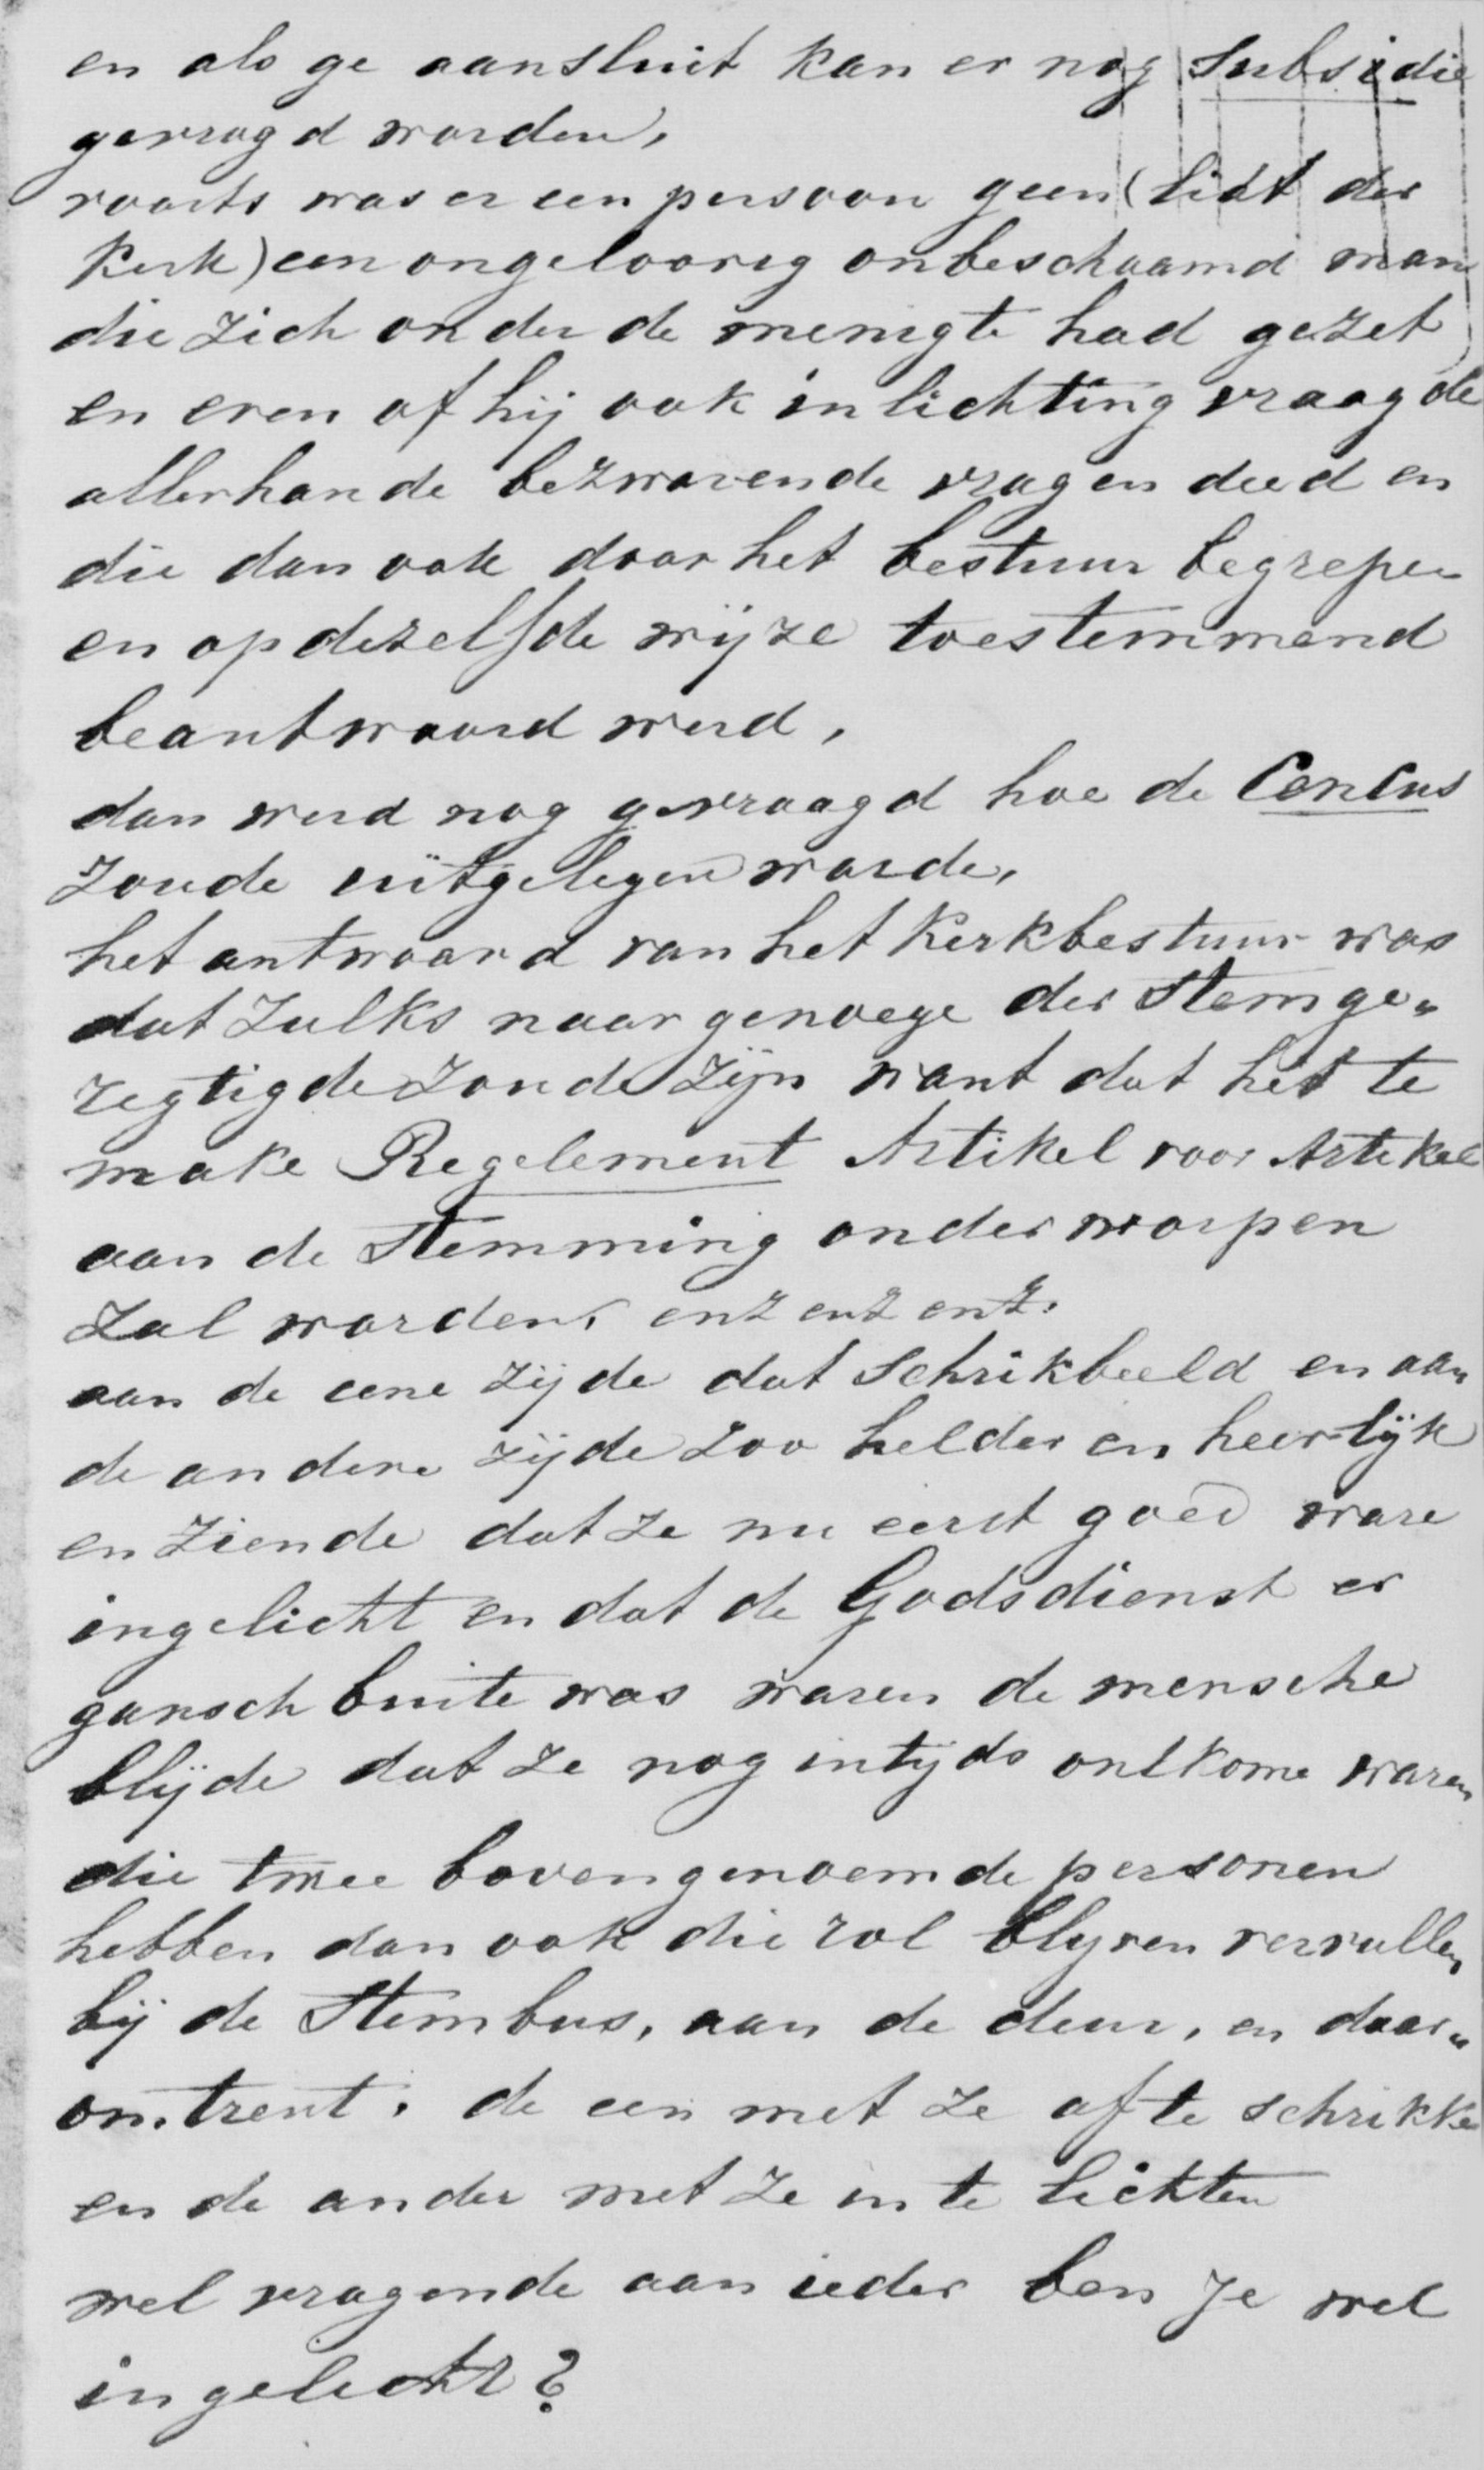 en als ge aansluit kan er nog Subsidie
gevragd worden,
voorts was er een persoon geen (lidt der
Kerk) een ongeloovig onbeschaamd man
die zich onder de menigte had gezet
en even of hij ook inlichting vraagde
allerhande bezwarende vragen deed en
die dan ook door het bestuur begrepen
en opdezelfde wijze toestemmend
beantwoord werd,
dan werd nog gevraagd hoe de Cencus
zoude uitgelegen worde,
het antwoord van het Kerkbestuur was
dat zulks naar genoege der Stemge„
regtigde zoude zijn want dat het te
make Regelement Artikel voor Artikel
aan de Stemming onderworpen
Zal worden, enz enz enz.
aan de eene zijde dat Schrikbeeld en aan
de andere zijde zoo helder en heerlijk
en ziende dat ze nu eerst goed ware
ingelicht en dat de Godsdienst er
gansch buite was waren de mensche
blijde dat ze nog intijds ontkome waren
die twee bovengenoemde personen
hebben dan ook die rol blyven vervullen
bij de Stembus, aan de deur, en daar„
omtrent. de een met ze af te schrikke
en de ander met ze in te lichten
wel vragende aan ieder ben je wel
ingelicht?